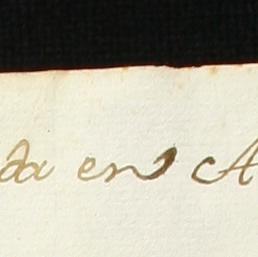 da en A